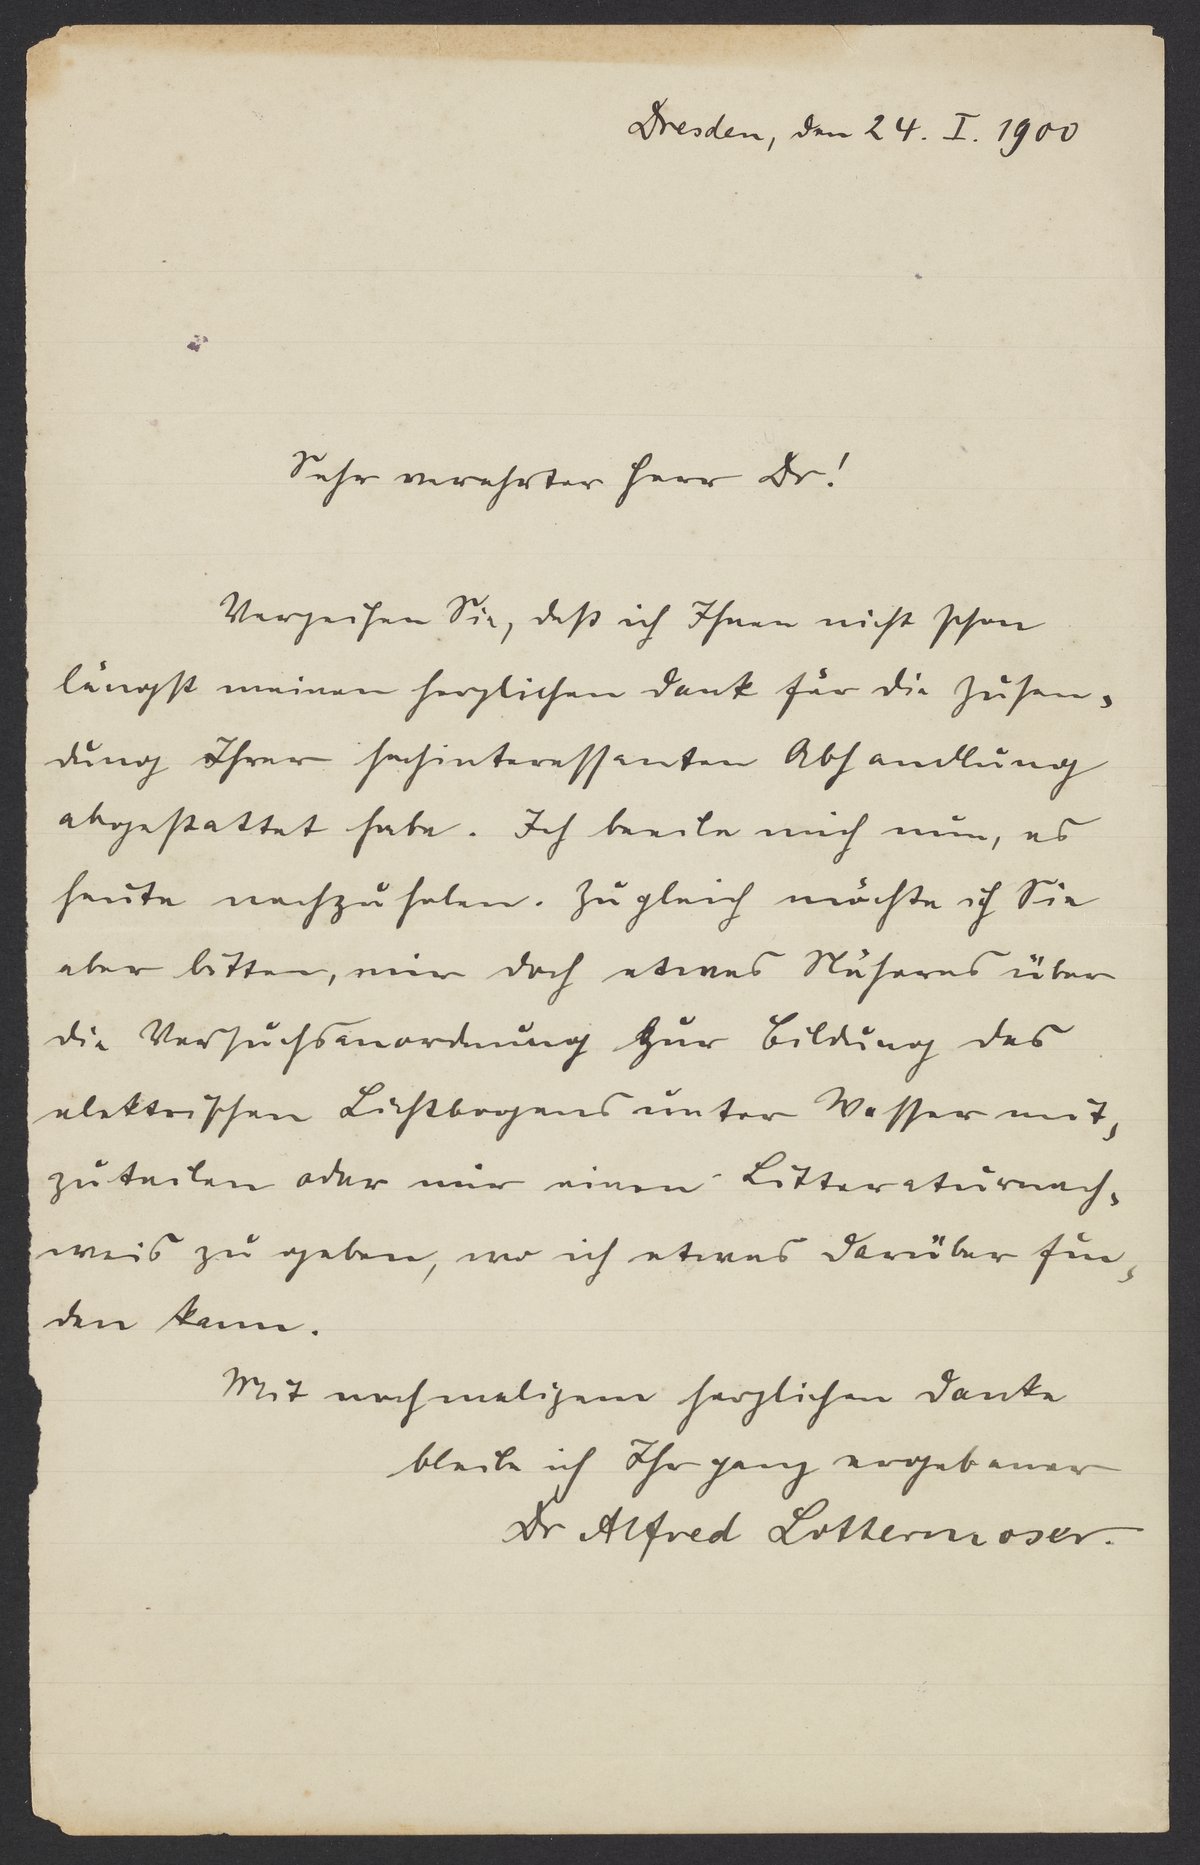 Dresden, den 24. I. 1900
Sehr verehrter Herr Dr!
Verzeihen Sie, daß ich Ihnen nicht schon
längst meinen herzlichen Dank für die Zusen-
dung Ihrer hochinteressanten Abhandlung
abgestattet habe. Ich beeile mich nun, es
heute nachzuholen. Zugleich möchte ich Sie
aber bitten, mir doch etwas Näheres über
die Versuchsanordnung zur Bildung des
elektrischen Lichtbogens unter Wasser mit-
zuteilen oder mir einen Litteraturnach-
weis zu geben, wo ich etwas darüber fin-
den kann.
Mit nochmaligem herzlichen Danke
bleibe ich Ihr ganz ergebener
Dr Alfred Lottermoser.